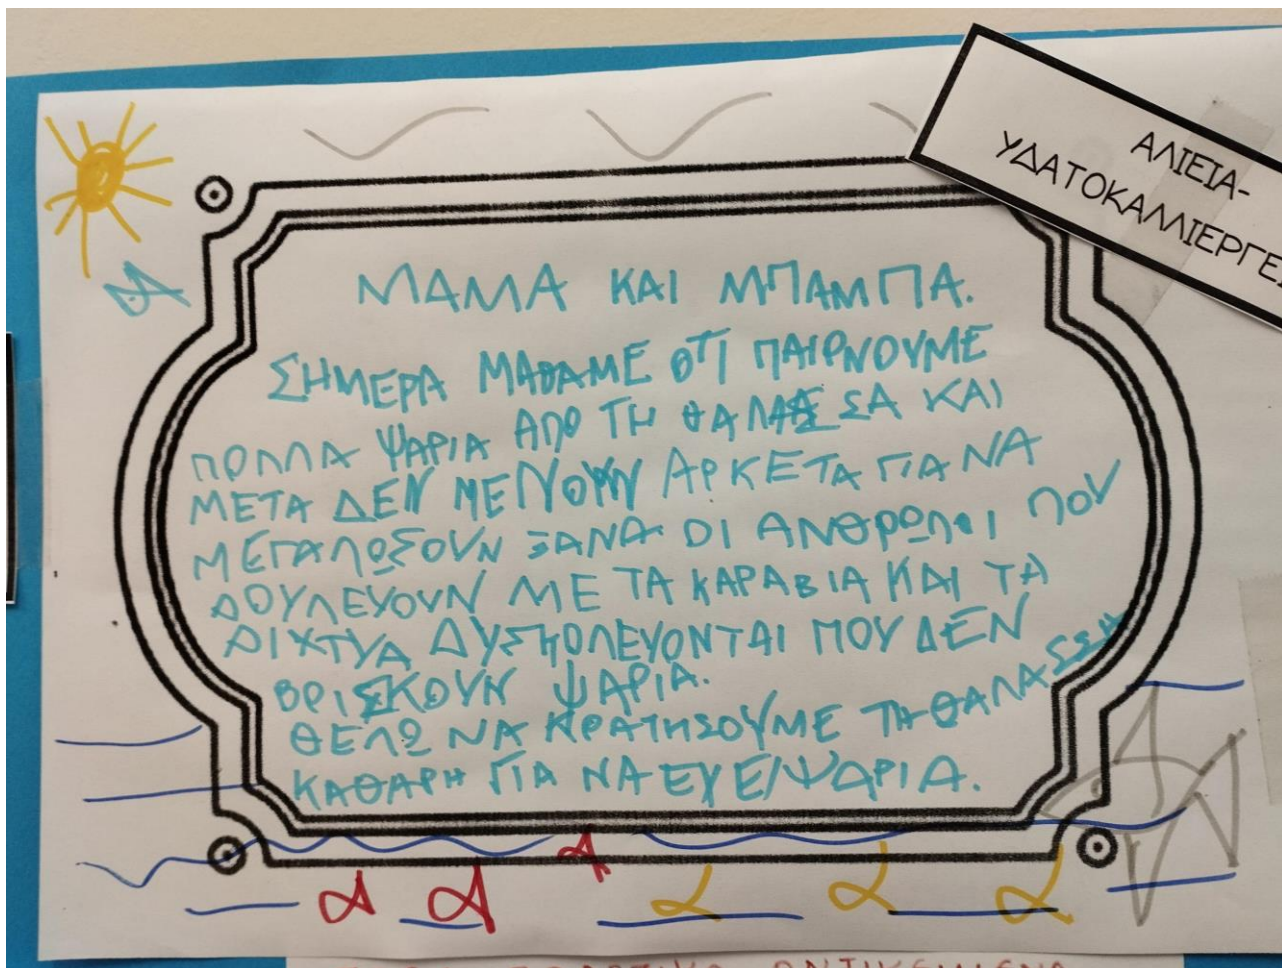 ΑΛΙΕΙΑ-
ΥΔΑΤΟΚΑΛΛΙΕΡΓΕΙ
ΜΑΜΑ ΚΑΙ ΜΠΑΜΠΑ.
ΣΗΜΕΡΑ ΜΑΘΑΜΕ ΟΤΙ ΠΑΙΡΝΟΥΜΕ
ΠΟΛΛΑ ΨΑΡΙΑ ΑΠΟ ΤΗ ΘΑΛΑΣΣΑ ΚΑΙ
ΜΕΤΑ ΔΕΝ ΜΕΝΟΥΝ ΑΡΚΕΤΑ ΓΙΑ ΝΑ
ΜΕΓΑΛΩΣΟΥΝ ΞΑΝΑ ΟΙ ΑΝΘΡΩΠΟΙ ΠΟΥ
ΔΟΥΛΕΥΟΥΝ ΜΕ ΤΑ ΚΑΡΑΒΙΑ ΚΑΙ ΤΑ
ΔΙΧΤΥΑ ΔΥΣΚΟΛΕΥΟΝΤΑΙ ΠΟΥ ΔΕΝ
ΒΡΙΣΚΟΥΝ ΨΑΡΙΑ.
ΘΕΛΩ ΝΑ ΚΡΑΤΗΣΟΥΜΕ ΤΗ ΘΑΛΑΣΣΑ
ΚΑΘΑΡΗ ΓΙΑ ΝΑ ΕΧΕΙ ΨΑΡΙΑ.
ΑΝΤΙΚΕΙΜΕΝΑ